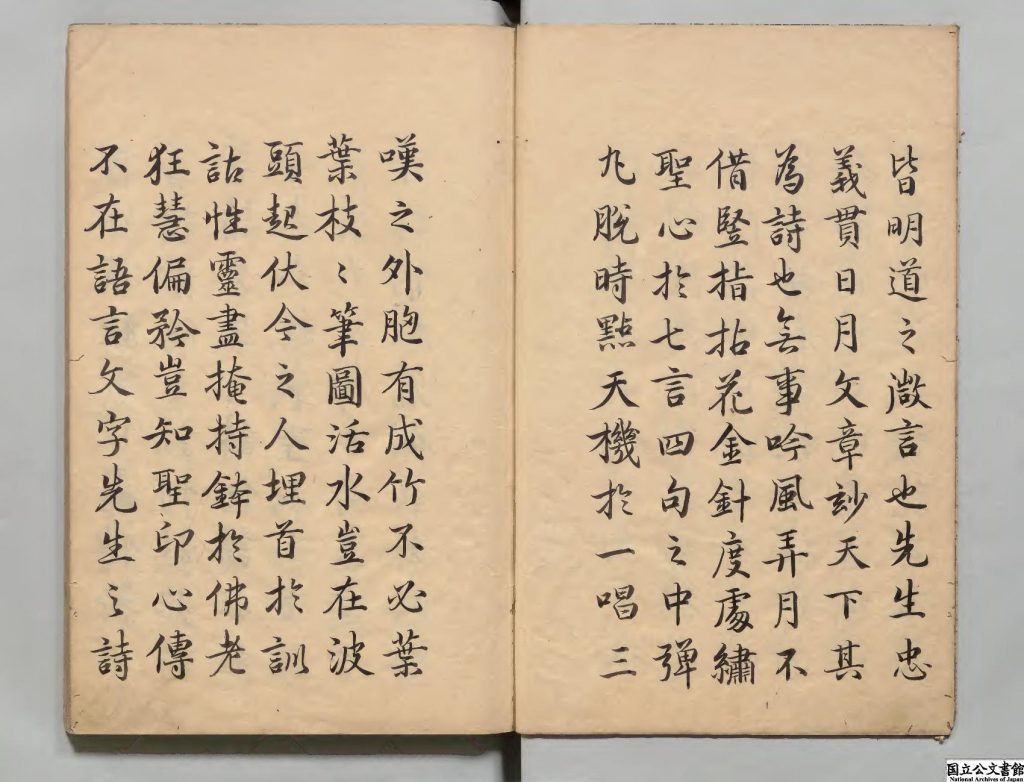 皆明道之微言也先生忠
義貫日月文章妙天下其
為詩也無事吟風弄月不
借竪指拈花金針度處繡
聖心於七言四句之中彈
丸脫時點天機於一唱三
嘆之外胞有成竹不必葉
葉枝〻筆圖活水豈在波
頭起伏今之人埋首於訓
詁性靈盡掩持鉢於佛老
狂慧偏矜豈知聖印心傳
不在語言文字先生之詩
国立公文書館
National Archives of Japan